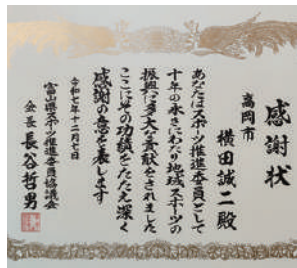 感謝状
高岡市
横田誠二殿
あなたはスポーツ推進委員として
十年の永きにわたり地域スポーツの
振興に多大な貢献をされました
ここにその功績をたたえ深く
感謝の意を表します
令和七年十二月七日
富山県スポーツ推進委員協議会
会長長谷哲男